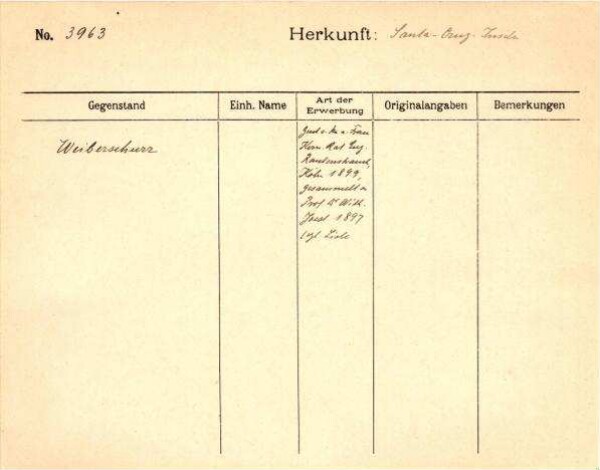 No. 3963
Herkunft: Santa-Cruz-Inseln
Gegenstand
Einh. Name
Art der
Erwerbung
Originalangaben
Bemerkungen
Weiberschurz
Frau
Herrn
Rautenstrauch,
Köln 1899,
gesammelt v.
Prof Dr Wilh.
Joest 1897
Liste